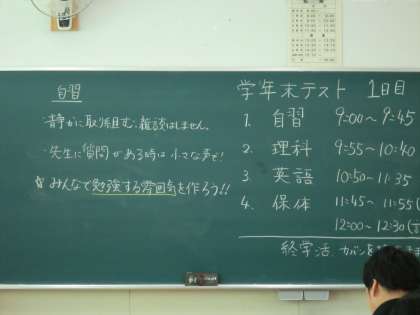 自習
・静かに取り組む。雑談はしません。
・先生に質問がある時は小さな声で!
☆みんなで勉強する雰囲気を作ろう!!
学年末テスト 1日目
1. 自習 9:00～9:45
2. 理科 9:55～10:40
3. 英語 10:50～11:35
4. 保体 11:45～11:55
12:00～12:30
終学活